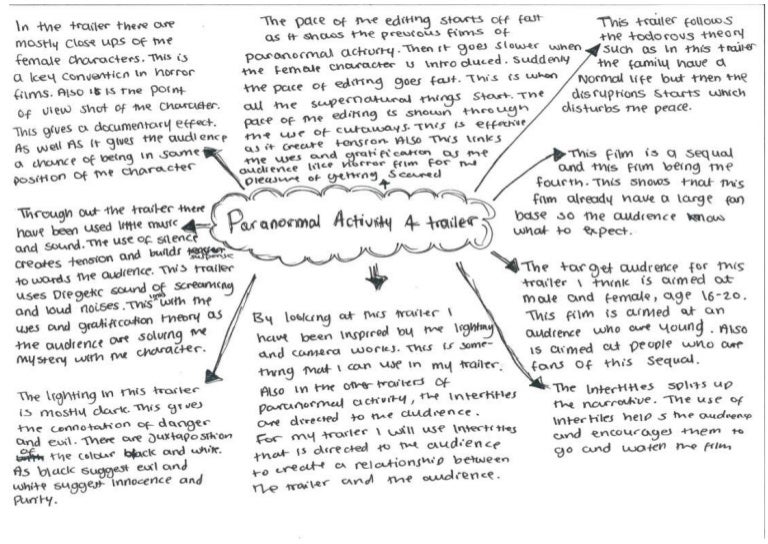 In the trailer there are
mostly close ups of the
female characters. This is
a key convention in horror
films. Also it is the point
of view shot of the character.
This gives a documentary effect.
As well As it gives the audience
a chance of being in same
position of the character
The pace of the editing starts off fast
as it shows the previous films of
paranormal activity. Then it goes slower when
the female character is introduced. Suddenly
the pace of editing goes fast. This is when
all the supernatural things start. The
pace of the editing is shown through
the use of cutaways. This is effective
as it create tension. Also This links
the uses and gratification as the
audience like horror film for the
pleasure of getting scared
This trailer follows
the todorous theory
such as in this trailer
the family have a
Normal life but then the
disruptions starts which
disturbs the peace.
This film is a sequal
and this film being the
fourth. This shows that this
film already have a large fan
base so the audience know
what to expect.
Paranormal Activity 4 trailer
Through out the trailer there
have been used little music
and sound. The use of silence
creates tension and builds suspense
to wards the audience. This trailer
uses Diegetic sound of screaming
and loud noises. This links with the
uses and gratification theory as
the audience are solving the
mystery with the character.
The target audience for this
trailer I think is aimed at
male and female, age 16-20.
This film is aimed at an
audience who are young. Also
is aimed at people who are
fans of this sequal.
By looking at this trailer I
have been inspired by the lighting
and camera works. This is some-
thing that I can use in my trailer.
Also in the other trailers of
paranormal activity, the intertitles
are directed to the audience.
For my trailer I will use intertitles
that is directed to the audience
to create a relationship between
the trailer and the audience.
The lighting in this trailer
is mostly dark. This gives
the connotation of danger
and evil. There are juxtaposition
of the colour black and white.
As black suggest evil and
white suggest innocence and
Purity.
The Intertitles splits up
the narrative. The use of
intertiles help s the audience
and encourages them to
go and watch the film